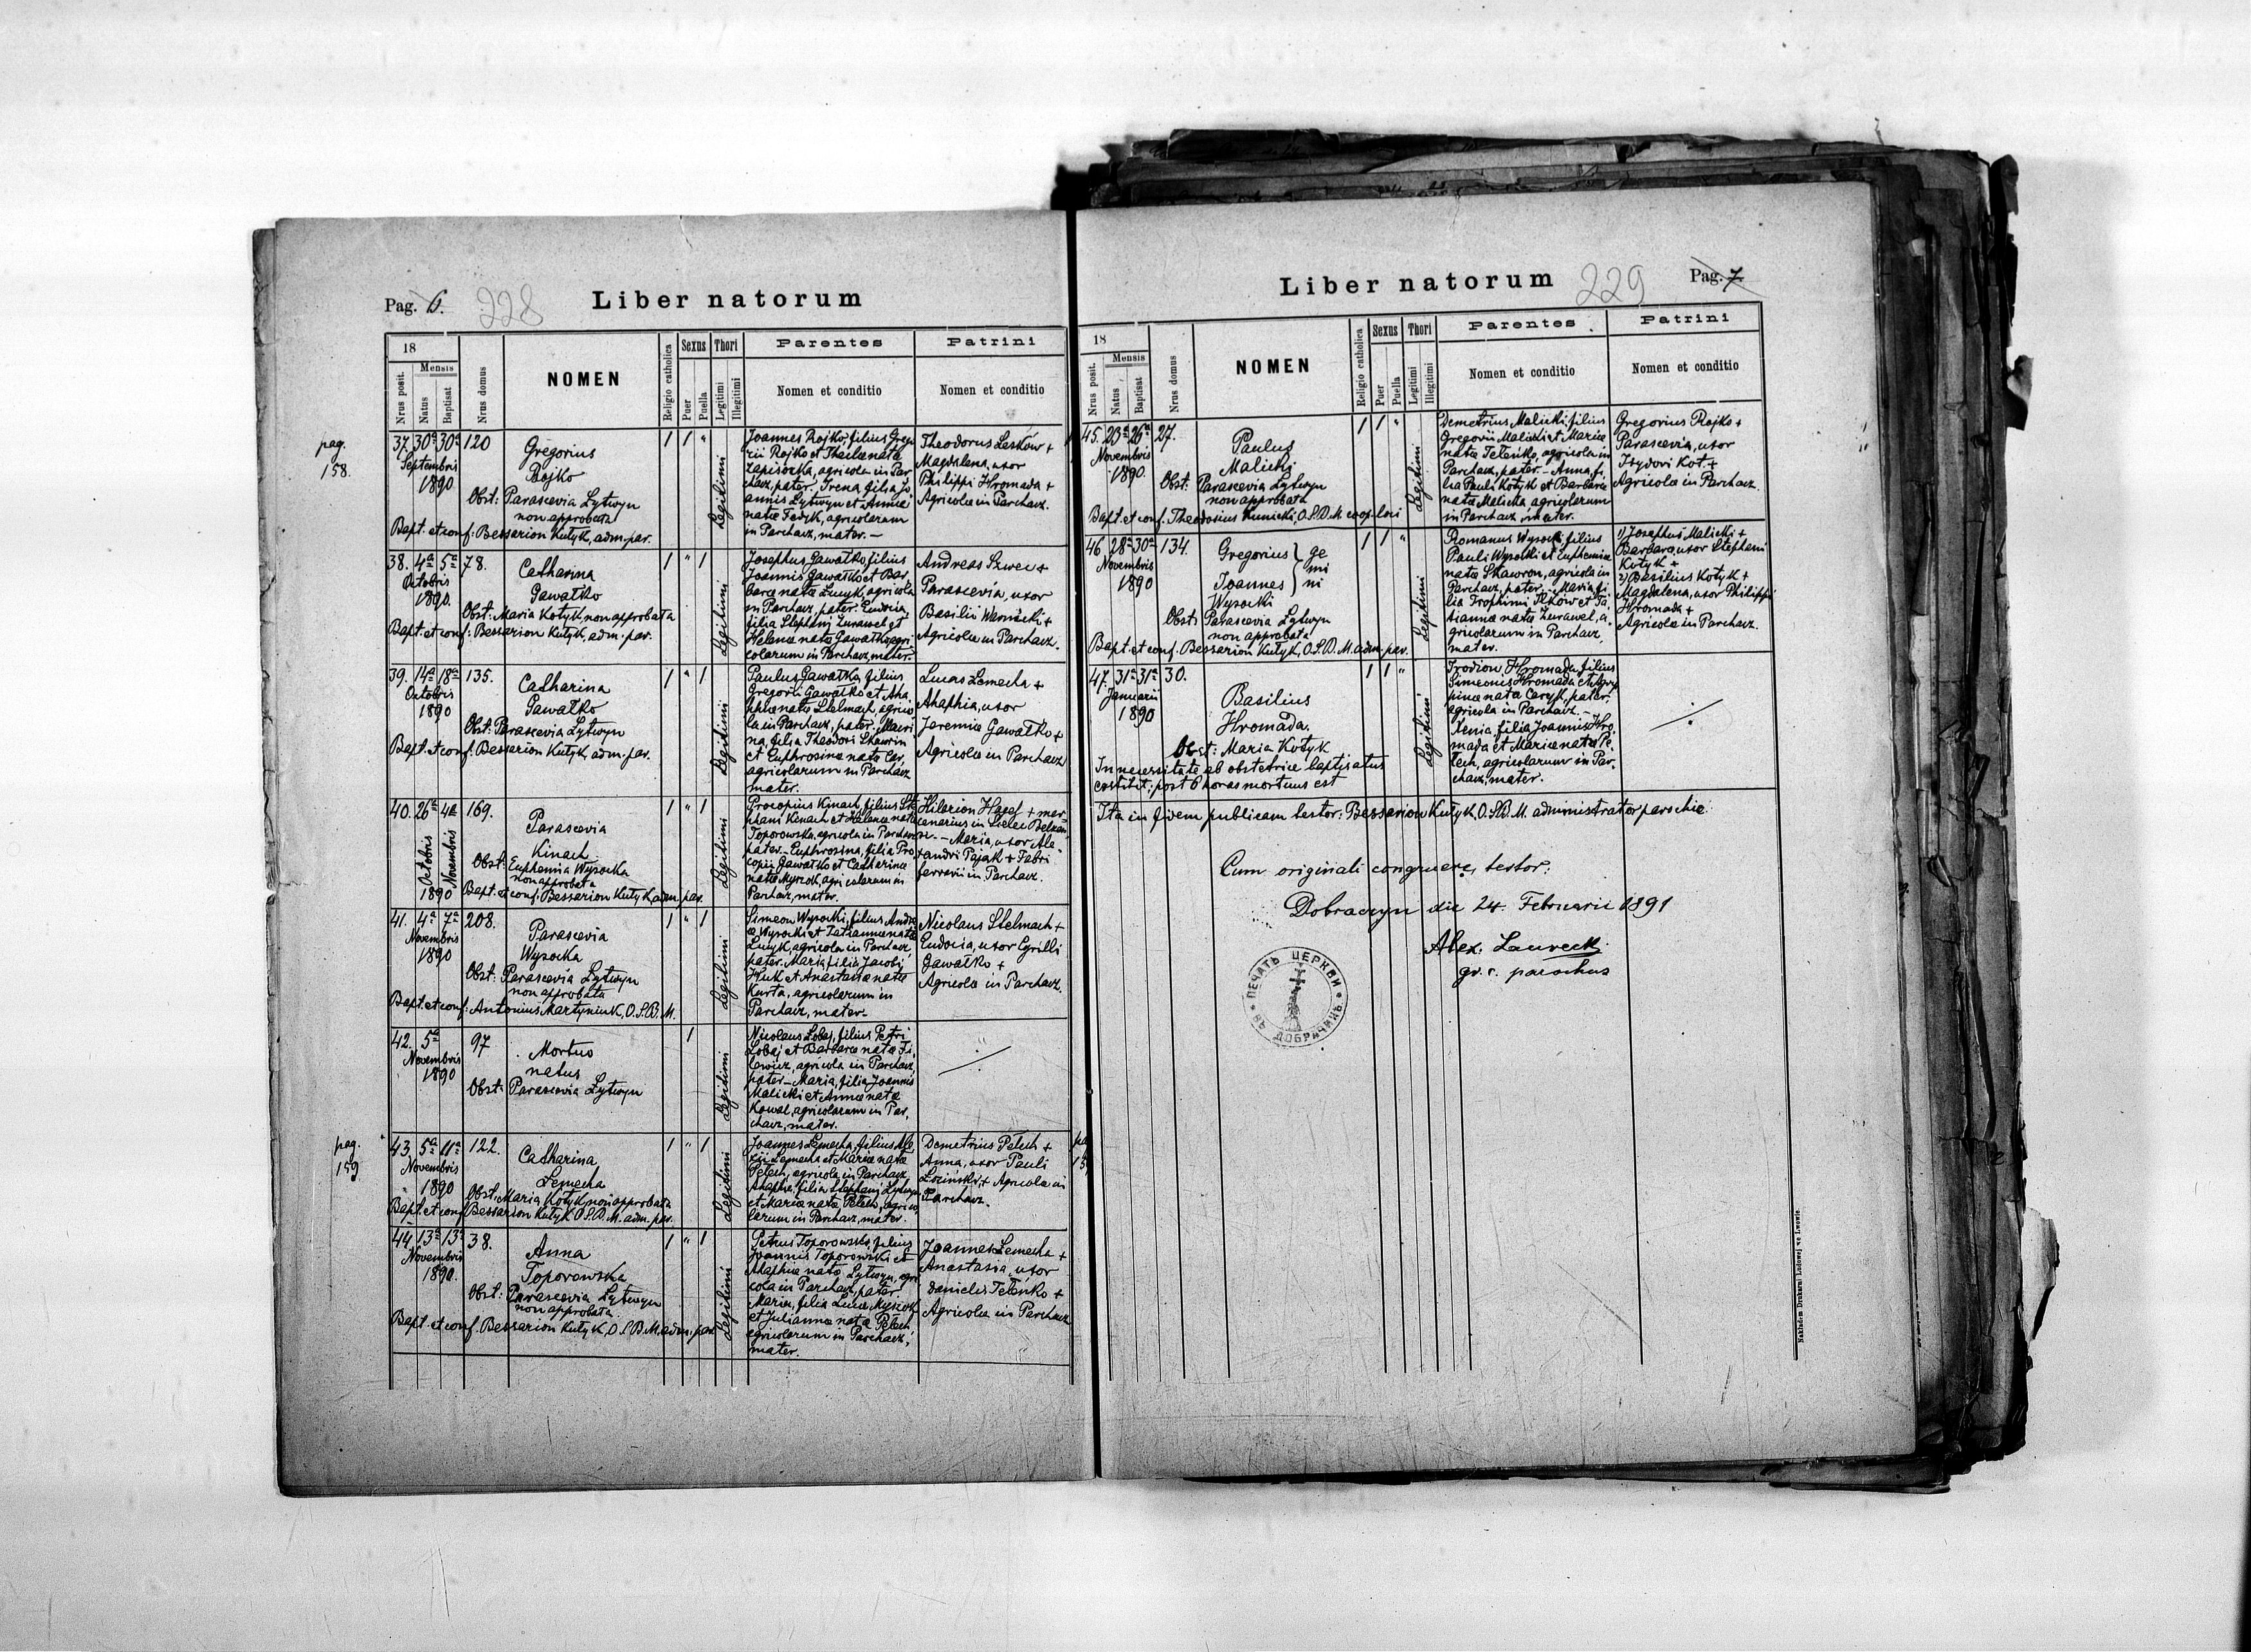 Pag. 6.
228
Liber natorum
18
Mensis
Nrus posit.
Natus
Baptisat
Nrus domus
NOMEN
Religio catholica
Sexus
Puer
Puella
Thori
Legitimi
Illegitimi
Parentes
Nomen et conditio
Patrini
Nomen et conditio
pag.
158.
37. 30a 30a 120
Septembris
1890
Gregorius
Rojko
Obst: Parascevia Lytwyn
non approbata
Bapt. et conf: Bessarion Kutyk, adm. par.
1 1 "
Legitimi
Joannes Rojko, filius Grego
rii Rojko et Theclae nata
Zapisocka, agricola in Par
chacz, pater. Irena, filia Jo
annis Lytwyn et Annae
natae Fedyk, agricolarum
in Parchacz, mater. —
Theodorus Leskow +
Magdalena, uxor
Philippi Hromada +
Agricolae in Parchacz.
38. 4a 5a 78.
Octobris
1890.
Catharina
Gawałko
Obst: Maria Kotyk non approbata
Bapt. et conf: Bessarion Kutyk, adm. par.
1 " 1
Legitimi
Josephus Gawałko, filius
Joannis Gawałko et Bar
barae natae Lucyk, agricola
in Parchacz, pater. Eudocia,
filia Stephani Zurawel et
Helenae nata Gawałko agri
colarum in Parchacz, mater.
Andreas Szwec +
Parascevia, uxor
Basilii Warnicki +
Agricolae in Parchacz.
39. 14a 18a 135.
Octobris
1890
Catharina
Gawałko
Obst: Parascevia Lytwyn
Bapt. et conf: Bessarion Kutyk, adm. par.
1 " 1
Legitimi
Paulus Gawałko, filius
Gregorii Gawałko et Aha
phiae natae Stelmach, agrico
la in Parchacz, pater. Mari
na, filia Theodori Skawrin
et Euphrosinae nata Car,
agricolarum in Parchacz
mater.
Lucas Lemecha +
Ahaphia, uxor
Jeremiae Gawałko +
Agricolae in Parchacz
40. 26a 4a 169.
Octobris
Novembris
1890
Parascevia
Kinach
Obst: Euphemia Wysocka
non approbata
Bapt. et conf: Bessarion Kutyk, adm. par.
1 " 1
Legitimi
Procopius Kinach, filius Ste
phani Kinach et Helenae nata
Toporowska, agricola in Parchacz
pater. Euphrosina, filia Pro
copii Gawałko et Catharinae
natae Myszok, agricolarum in
Parchacz, mater.
Hilarion Hagel + mer-
cenarius in Sielec Belzan-
se. — Maria, uxor Ale-
xandri Pajak + Fabri
ferrarii in Parchacz.
41. 4a 7a 208.
Novembris
1890
Parascevia
Wysocka
Obst: Parascevia Lytwyn
non approbata
Bapt. et conf: Antonius Martyniuk, O.S.B.M.
1 " 1
Legitimi
Simeon Wysocki, filius Andre
ae Wysocki et Tatiannae nata
Lucyk, agricola in Parchacz
pater. Maria, filia Jacobi
Huk et Anastasiae nata
Kurta, agricolarum in
Parchacz, mater.
Nicolaus Stelmach +
Eudocia, uxor Cyrilli
Gawałko +
Agricolae in Parchacz.
42. 5a 97
Novembris
1890
Mortuo
natus
Obst: Parascevia Lytwyn
1
Legitimi
Nicolaus Lobaj, filius Petri
Lobaj et Barbarae natae Fi
lewicz, agricola in Parchacz
pater — Maria, filia Joannis
Malicki et Annae nata
Kowal, agricolarum in Par,
chacz, mater.
pag.
159
43. 5a 11a 122.
Novembris
1890
Catharina
Lemecha
Obst: Maria Kotyk non approbata
Bapt. et conf: Bessarion Kutyk O.S.B.M. adm. par.
1 " 1
Legitimi
Joannes Lemecha, filius Ale
xii Lemecha et Mariae nata
Pelech, agricola in Parchacz
Ahaphia, filia Stephani Lytwyn
et Mariae nata Pelech, agrico
larum in Parchacz, mater.
Demetrius Pelech +
Anna, uxor Pauli
Lozinski + Agricolae in
Parchacz.
44. 13a 13a 38.
Novembris
1890.
Anna
Toporowska
Obst: Parascevia Lytwyn
non approbata
Bapt. et conf. Bessarion Kutyk, O.S.B.M. adm. par.
1 " 1
Legitimi
Petrus Toporowski, filius
Joannis Toporowski et
Ahaphiae nata Lytwyn, agri
cola in Parchacz, pater.
Maria, filia Lucae Myszok
et Juliannae nata Pelech
agricolarum in Parchacz,
mater.
Joannes Lemecha +
Anastasia, uxor
Danielis Teleńko +
Agricolae in Parchacz
Liber natorum
229
Pag. 7
18
Mensis
Nrus posit.
Natus
Baptisat
Nrus domus
NOMEN
Religio catholica
Sexus
Puer
Puella
Thori
Legitimi
Illegitimi
Parentes
Nomen et conditio
Patrini
Nomen et conditio
45. 25a 26a 27.
Novembris
1890.
Paulus
Malicki
Obst: Parascevia Lytwyn
non approbata
Bapt. et conf. Theodosius Kunicki, O.S.B.M. coop. loci
1 1 "
Legitimi
Demetrius Malicki, filius
Gregorii Malicki et Mariae
natae Teleńko, agricola in
Parchacz, pater. — Anna, fi
lia Pauli Kotyk et Barbarae
nata Malicka agricolarum
in Parchacz mater.
Gregorius Rojko +
Parascevia, uxor
Isydori Kot. +
Agricolae in Parchacz.
46 28a 30a 134.
Novembris
1890
Gregorius } ge
mi
Joannes } ni
Wysocki
Obst: Parascevia Lytwyn
non approbata
Bapt. et conf. Bessarion Kutyk, O.S.B.M. adm. par.
1 1 "
Legitimi
Romanus Wysocki, filius
Pauli Wysocki et Euphemiae
nata Skawron, agricola in
Parchacz, pater. — Maria, fi
lia Trophimi Ilków et Ta
tiannae nata Zurawel, a,
gricolarum in Parchacz,
mater.
1) Josephus Malicki +
Barbara, uxor Stephani
Kotyk +
2) Basilius Kotyk +
Magdalena, uxor Philippi
Hromada +
Agricolae in Parchacz.
47. 31a 31a 30.
Januarii
1890
Basilius
Hromada.
Obst: Maria Kotyk
In necessitate ab obstetrice baptisatus
exstitit; post 6 horas mortuus est
1 1 "
Legitimi
Irodion Hromada, filius
Simeonis Hromada et Agry
pinae nata Caryk, pater,
agricola in Parchacz. —
Xenia, filia Joannis Hro,
mada et Mariae nata Pe,
lech, agricolarum in Par,
chacz, mater.
Ita in fidem publicam testor: Bessarion Kutyk, O.S.B.M. administrator parochiae.
Cum originali congruere, testor:
Dobraczyn die 24. Februarii 1891
Alex. Lavreck
gr. c. parochus
ПЕЧАТЬ ЦЕРКВИ
ВЪ ДОБРАЧИНѢ
Nakładem Drukarni Ludowej we Lwowie.